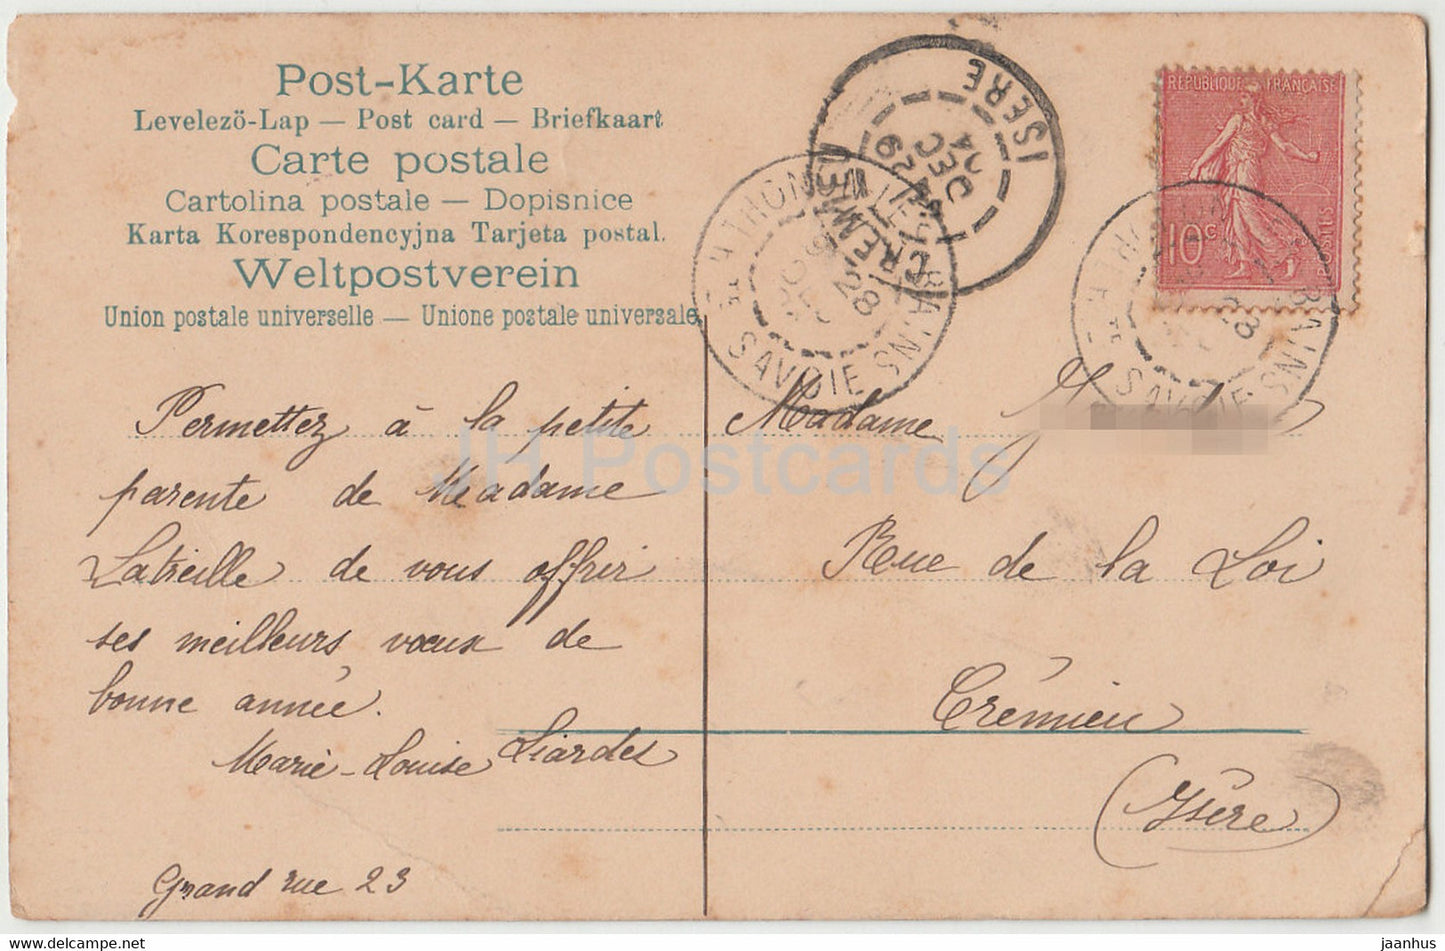 Post-Karte
Levelezö-Lap — Post card — Briefkaart
Carte postale
Cartolina postale — Dopisnice
Karta Korespondencyjna Tarjeta postal.
Weltpostverein
Union postale universelle — Unione postale universale
Permettez à la petite
parente de Madame
Latreille de vous offrir
ses meilleurs vœux de
bonne année.
Marie-Louise Liardes
Grand rue 23
ISERE
CREMIEU
29
DEC
04
THONON
BAINS
SAVOIE
28
REPUBLIQUE FRANÇAISE
10c
POSTES
BAINS
SAVOIE
28
Madame
Rue de la Loi
Crémieu
(Isère)
JH Postcards
delcampe.net
jaanhus